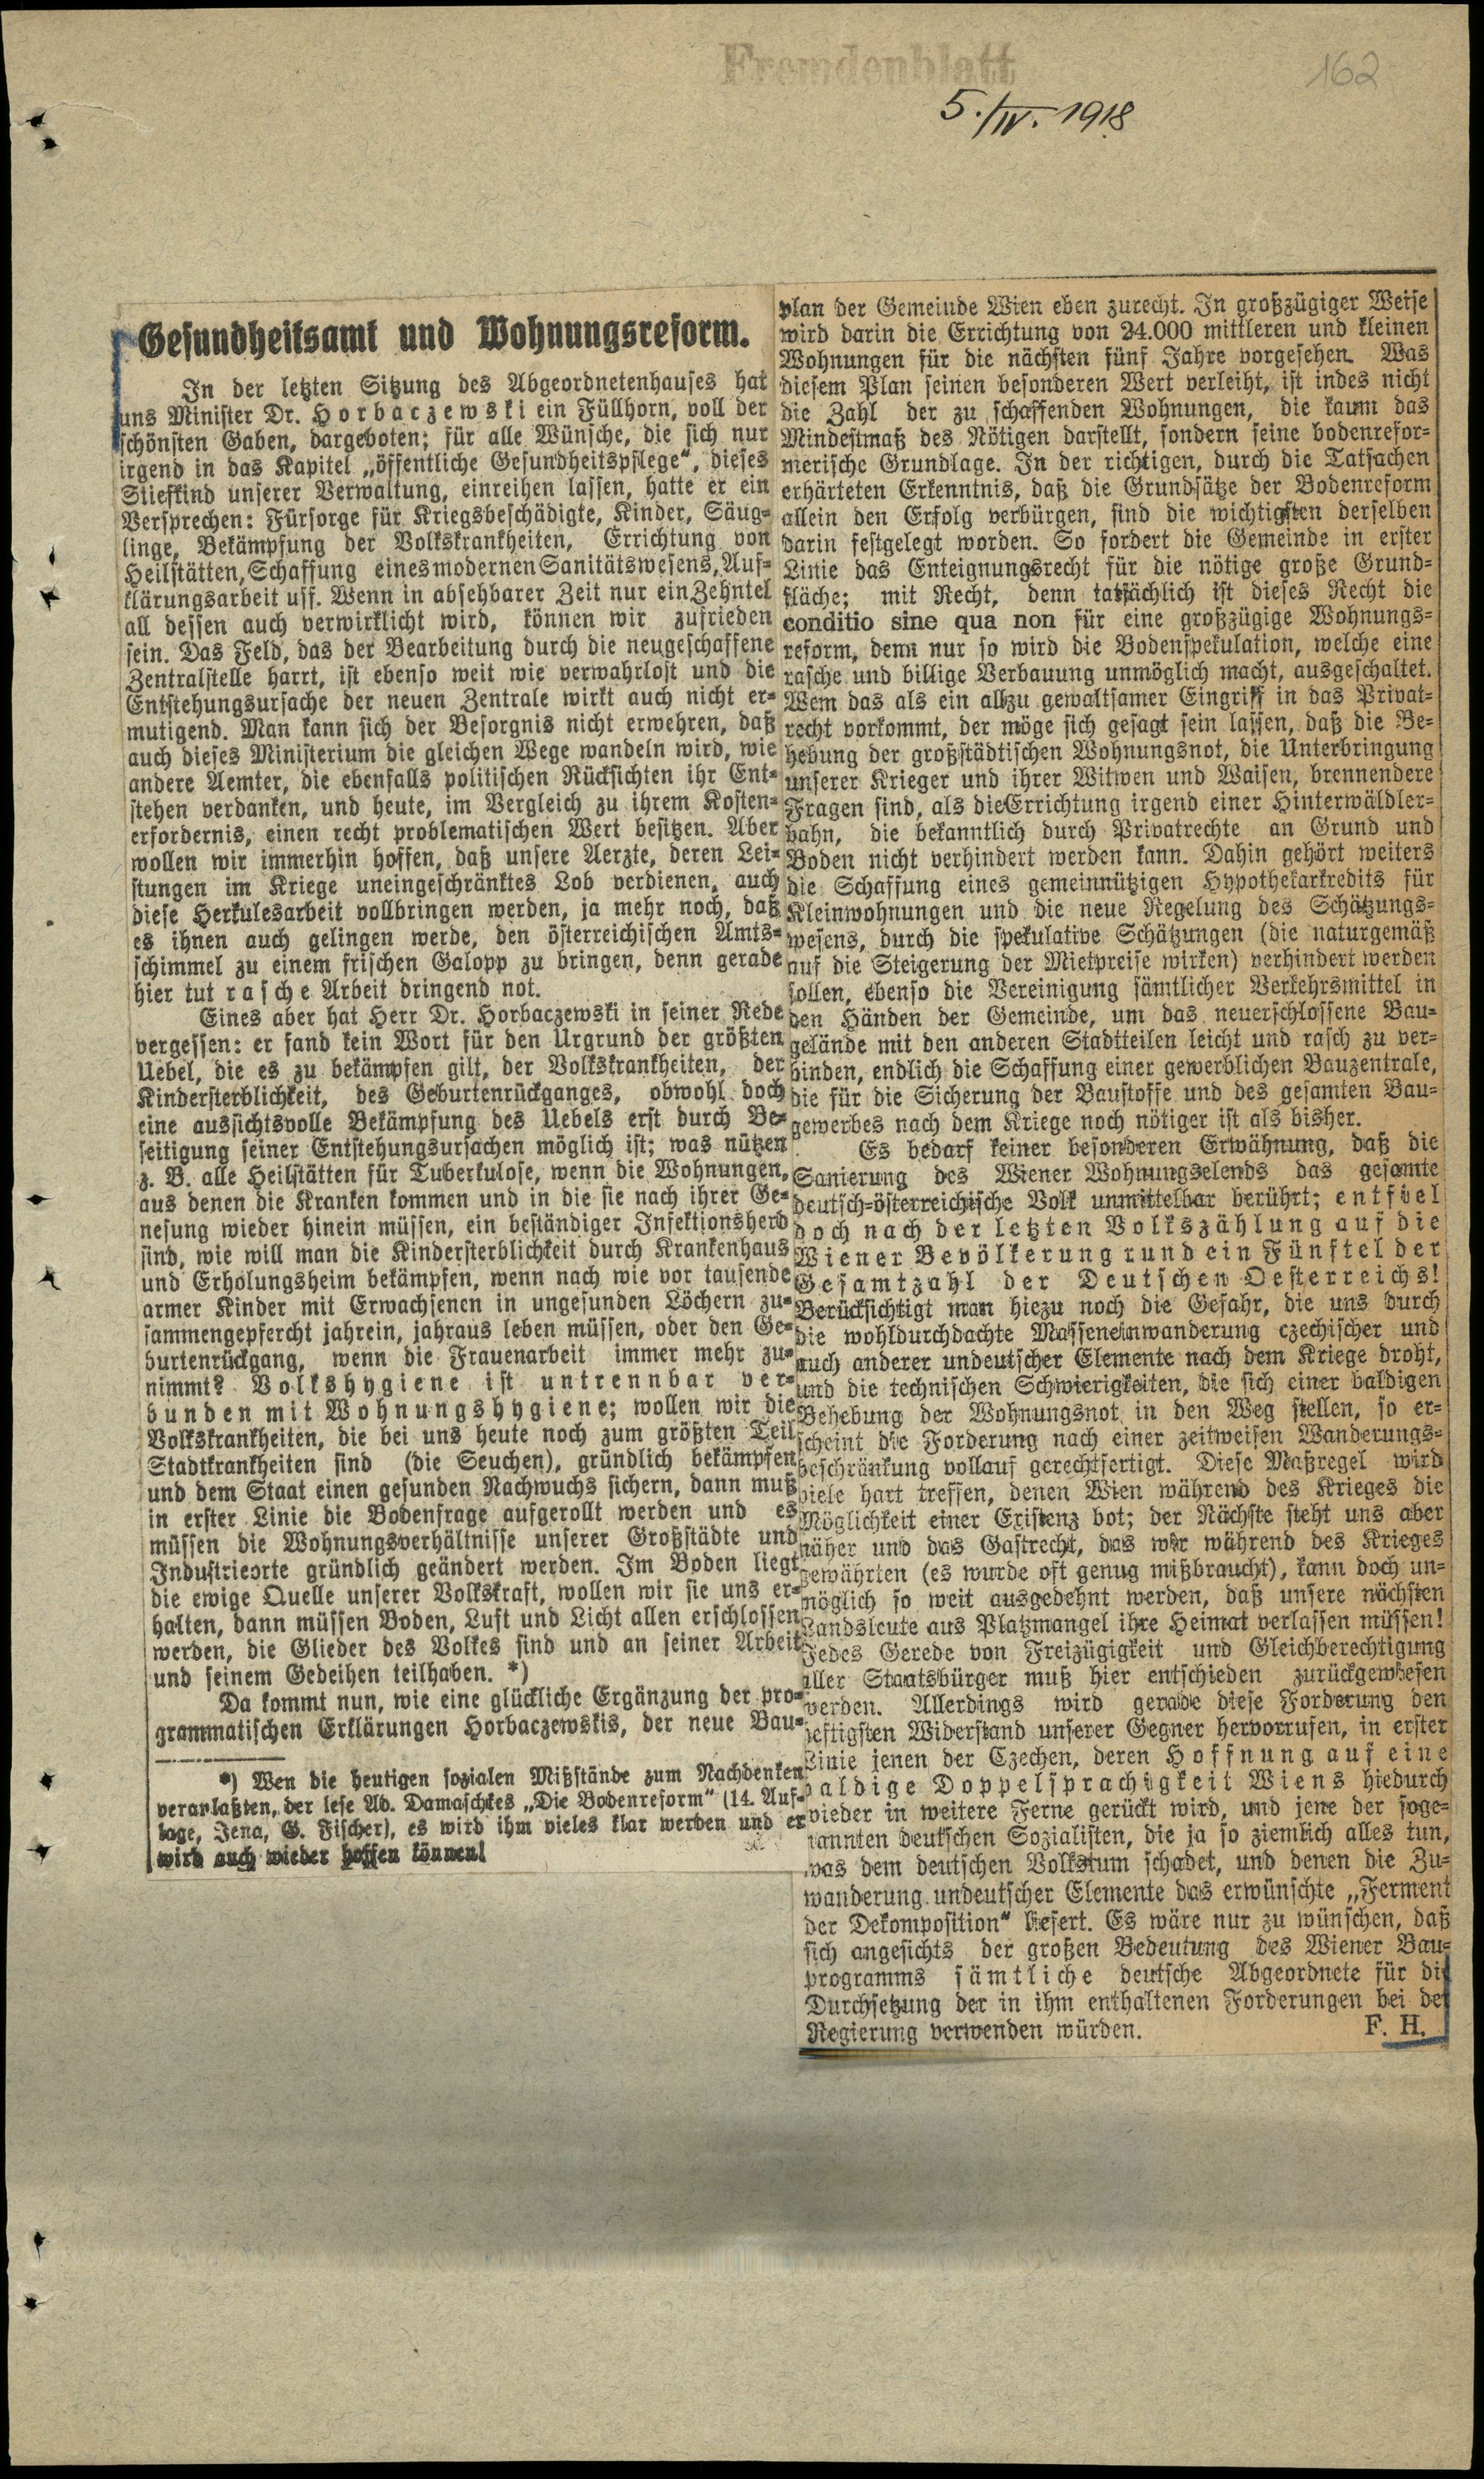 Fremdenblatt
162
5./IV. 1918
Gesundheitsamt und Wohnungsreform.
In der letzten Sitzung des Abgeordnetenhauses hat
uns Minister Dr. Horbaczewski ein Füllhorn, voll der
schönsten Gaben, dargeboten; für alle Wünsche, die sich nur
irgend in das Kapitel „öffentliche Gesundheitspflege“, dieses
Stiefkind unserer Verwaltung, einreihen lassen, hatte er ein
Versprechen: Fürsorge für Kriegsbeschädigte, Kinder, Säug-
linge, Bekämpfung der Volkskrankheiten, Errichtung von
Heilstätten, Schaffung eines modernen Sanitätswesens, Auf-
klärungsarbeit usf. Wenn in absehbarer Zeit nur ein Zehntel
all dessen auch verwirklicht wird, können wir zufrieden
sein. Das Feld, das der Bearbeitung durch die neugeschaffene
Zentralstelle harrt, ist ebenso weit wie verwahrlost und die
Entstehungsursache der neuen Zentrale wirkt auch nicht er-
mutigend. Man kann sich der Besorgnis nicht erwehren, daß
auch dieses Ministerium die gleichen Wege wandeln wird, wie
andere Aemter, die ebenfalls politischen Rücksichten ihr Ent-
stehen verdanken, und heute, im Vergleich zu ihrem Kosten-
erfordernis, einen recht problematischen Wert besitzen. Aber
wollen wir immerhin hoffen, daß unsere Aerzte, deren Lei-
stungen im Kriege uneingeschränktes Lob verdienen, auch
diese Herkulesarbeit vollbringen werden, ja mehr noch, daß
es ihnen auch gelingen werde, den österreichischen Amts-
schimmel zu einem frischen Galopp zu bringen, denn gerade
hier tut rasche Arbeit dringend not.
Eines aber hat Herr Dr. Horbaczewski in seiner Rede
vergessen: er fand kein Wort für den Urgrund der größten
Uebel, die es zu bekämpfen gilt, der Volkskrankheiten, der
Kindersterblichkeit, des Geburtenrückganges, obwohl doch
eine aussichtsvolle Bekämpfung des Uebels erst durch Be-
seitigung seiner Entstehungsursachen möglich ist; was nützen
z. B. alle Heilstätten für Tuberkulose, wenn die Wohnungen,
aus denen die Kranken kommen und in die sie nach ihrer Ge-
nesung wieder hinein müssen, ein beständiger Infektionsherd
sind, wie will man die Kindersterblichkeit durch Krankenhaus
und Erholungsheim bekämpfen, wenn nach wie vor tausende
armer Kinder mit Erwachsenen in ungesunden Löchern zu-
sammengepfercht jahrein, jahraus leben müssen, oder den Ge-
burtenrückgang, wenn die Frauenarbeit immer mehr zu-
nimmt? Volkshygiene ist untrennbar ver-
bunden mit Wohnungshygiene; wollen wir die
Volkskrankheiten, die bei uns heute noch zum größten Teil
Stadtkrankheiten sind (die Seuchen), gründlich bekämpfen
und dem Staat einen gesunden Nachwuchs sichern, dann muß
in erster Linie die Bodenfrage aufgerollt werden und es
müssen die Wohnungsverhältnisse unserer Großstädte und
Industrieorte gründlich geändert werden. Im Boden liegt
die ewige Quelle unserer Volkskraft, wollen wir sie uns er-
halten, dann müssen Boden, Luft und Licht allen erschlossen
werden, die Glieder des Volkes sind und an seiner Arbeit
und seinem Gedeihen teilhaben. *)
Da kommt nun, wie eine glückliche Ergänzung der pro-
grammatischen Erklärungen Horbaczewskis, der neue Bau-
*) Wen die heutigen sozialen Mißstände zum Nachdenken
veranlaßten, der lese Ad. Damaschkes „Die Bodenreform“ (14. Auf-
lage, Jena, G. Fischer), es wird ihm vieles klar werden und er
wird auch wieder hoffen können!
plan der Gemeinde Wien eben zurecht. In großzügiger Weise
wird darin die Errichtung von 24.000 mittleren und kleinen
Wohnungen für die nächsten fünf Jahre vorgesehen. Was
diesem Plan seinen besonderen Wert verleiht, ist indes nicht
die Zahl der zu schaffenden Wohnungen, die kaum das
Mindestmaß des Nötigen darstellt, sondern seine bodenrefor-
merische Grundlage. In der richtigen, durch die Tatsachen
erhärteten Erkenntnis, daß die Grundsätze der Bodenreform
allein den Erfolg verbürgen, sind die wichtigsten derselben
darin festgelegt worden. So fordert die Gemeinde in erster
Linie das Enteignungsrecht für die nötige große Grund-
fläche; mit Recht, denn tatsächlich ist dieses Recht die
conditio sine qua non für eine großzügige Wohnungs-
reform, denn nur so wird die Bodenspekulation, welche eine
rasche und billige Verbauung unmöglich macht, ausgeschaltet.
Wem das als ein allzu gewaltsamer Eingriff in das Privat-
recht vorkommt, der möge sich gesagt sein lassen, daß die Be-
hebung der großstädtischen Wohnungsnot, die Unterbringung
unserer Krieger und ihrer Witwen und Waisen, brennendere
Fragen sind, als die Errichtung irgend einer Hinterwäldler-
bahn, die bekanntlich durch Privatrechte an Grund und
Boden nicht verhindert werden kann. Dahin gehört weiters
die Schaffung eines gemeinnützigen Hypothekarkredits für
Kleinwohnungen und die neue Regelung des Schätzungs-
wesens, durch die spekulative Schätzungen (die naturgemäß
auf die Steigerung der Mietpreise wirken) verhindert werden
sollen, ebenso die Vereinigung sämtlicher Verkehrsmittel in
den Händen der Gemeinde, um das neuerschlossene Bau-
gelände mit den anderen Stadtteilen leicht und rasch zu ver-
binden, endlich die Schaffung einer gewerblichen Bauzentrale,
die für die Sicherung der Baustoffe und des gesamten Bau-
gewerbes nach dem Kriege noch nötiger ist als bisher.
Es bedarf keiner besonderen Erwähnung, daß die
Sanierung des Wiener Wohnungselends das gesamte
deutsch-österreichische Volk unmittelbar berührt; entfiel
doch nach der letzten Volkszählung auf die
Wiener Bevölkerung rund ein Fünftel der
Gesamtzahl der Deutschen Oesterreichs!
Berücksichtigt man hiezu noch die Gefahr, die uns durch
die wohldurchdachte Masseneinwanderung czechischer und
auch anderer undeutscher Elemente nach dem Kriege droht,
und die technischen Schwierigkeiten, die sich einer baldigen
Behebung der Wohnungsnot in den Weg stellen, so er-
scheint die Forderung nach einer zeitweisen Wanderungs-
beschränkung vollauf gerechtfertigt. Diese Maßregel wird
viele hart treffen, denen Wien während des Krieges die
Möglichkeit einer Existenz bot; der Nächste steht uns aber
näher und das Gastrecht, das wir während des Krieges
gewährten (es wurde oft genug mißbraucht), kann doch un-
möglich so weit ausgedehnt werden, daß unsere nächsten
Landsleute aus Platzmangel ihre Heimat verlassen müssen!
Jedes Gerede von Freizügigkeit und Gleichberechtigung
aller Staatsbürger muß hier entschieden zurückgewiesen
werden. Allerdings wird gerade diese Forderung den
heftigsten Widerstand unserer Gegner hervorrufen, in erster
Linie jenen der Czechen, deren Hoffnung auf eine
baldige Doppelsprachigkeit Wiens hiedurch
wieder in weitere Ferne gerückt wird, und jene der soge-
nannten deutschen Sozialisten, die ja so ziemlich alles tun,
was dem deutschen Volkstum schadet, und denen die Zu-
wanderung undeutscher Elemente das erwünschte „Ferment
der Dekomposition“ liefert. Es wäre nur zu wünschen, daß
sich angesichts der großen Bedeutung des Wiener Bau-
programms sämtliche deutsche Abgeordnete für die
Durchsetzung der in ihm enthaltenen Forderungen bei der
Regierung verwenden würden. F. H.